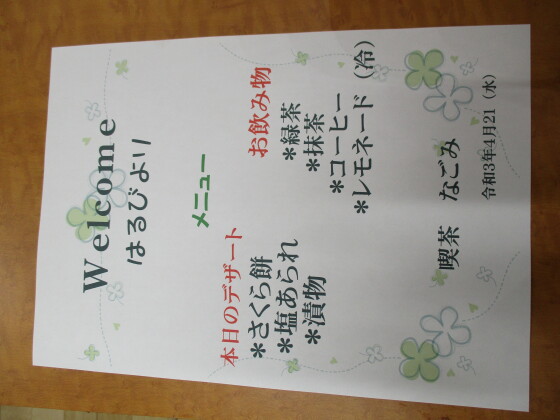 Welcome
はるびより
メニュー
本日のデザート
*さくら餅
*塩あられ
*漬物
お飲み物
*緑茶
*抹茶
*コーヒー
*レモネード（冷）
喫茶　なごみ
令和3年4月21（水）